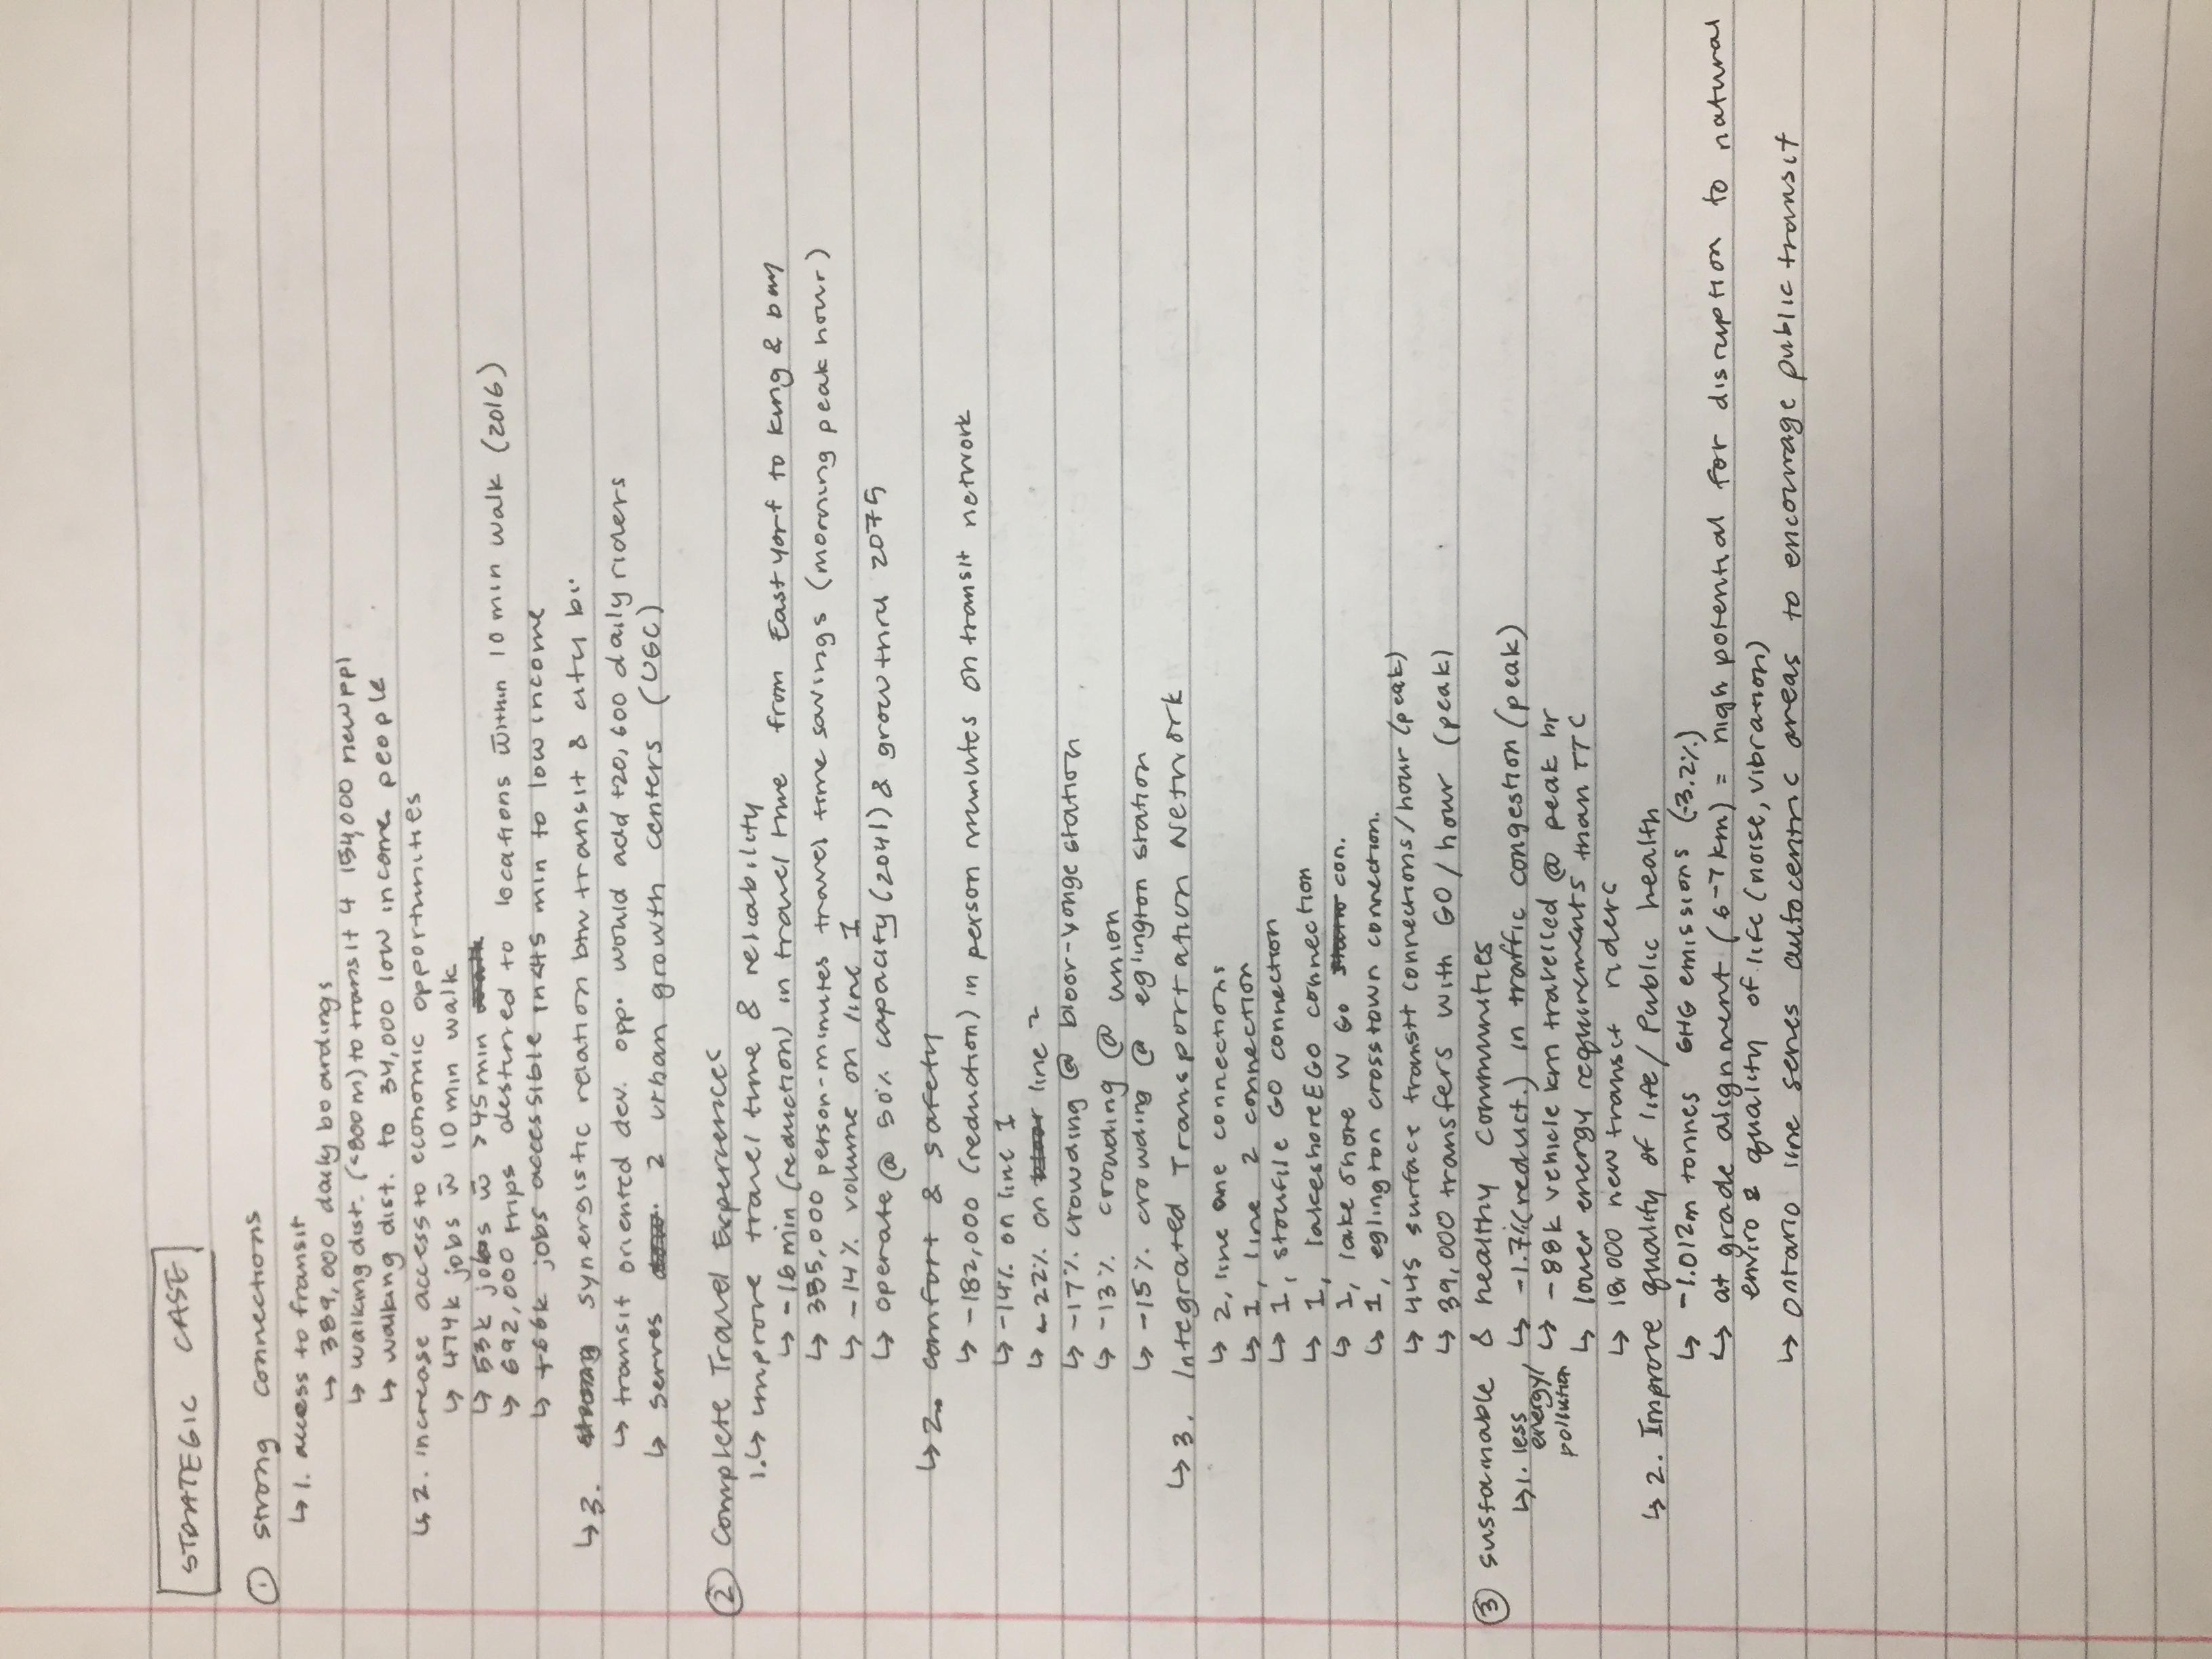 STRATEGIC CASE
① strong connections
↳ 1. access to transit
↳ 389,000 daily boardings
↳ walking dist. (<800m) to transit 4 154,000 new ppl
↳ walking dist. to 34,000 low income people
↳ 2. increase access to economic opportunities
↳ 474k jobs w̄ 10 min walk
↳ 53k jobs w̄ >45 min
↳ 692,000 trips destined to locations within 10 min walk (2016)
↳ +66k jobs accessible in <45 min to low income
↳ 3. strong synergistic relation btw transit & city
↳ transit oriented dev. opp. would add +20,600 daily riders
↳ serves 2 urban growth centers (UGC)
② Complete Travel Experiences
1.↳ improve travel time & reliability
↳ -16 min (reduction) in travel time from East york to king & bay
↳ 355,000 person-minutes travel time savings (morning peak hour)
↳ -14% volume on line 1
↳ operate @ 50% capacity (2041) & grow thru 2075
↳ 2. comfort & safety
↳ -182,000 (reduction) in person minutes on transit network
↳ -14% on line 1
↳ -22% on bloor line 2
↳ -17% crowding @ bloor-yonge station
↳ -13% crowding @ union
↳ -15% crowding @ eglington station
↳ 3. Integrated Transportation Network
↳ 2, line one connections
↳ 1, line 2 connection
↳ 1, stoufile GO connection
↳ 1, lakeshore E GO connection
↳ 1, lake shore W Go con.
↳ 1, eglington crosstown connection.
↳ 445 surface transit connections/hour (peak)
↳ 39,000 transfers with GO/hour (peak)
③ sustainable & healthy communities
↳ 1. less energy/pollution ↳ -1.7% (reduct.) in traffic congestion (peak)
↳ -88k vehicle km travelled @ peak hr
↳ lower energy requirements than TTC
↳ 18,000 new transit riders
↳ 2. Improve quality of life/Public health
↳ -1.012m tonnes GHG emissions (-3.2%)
↳ at grade alignment (6-7km) = high potential for disruption to natural
enviro & quality of life (noise, vibration)
↳ ontario line serves autocentric areas to encourage public transit